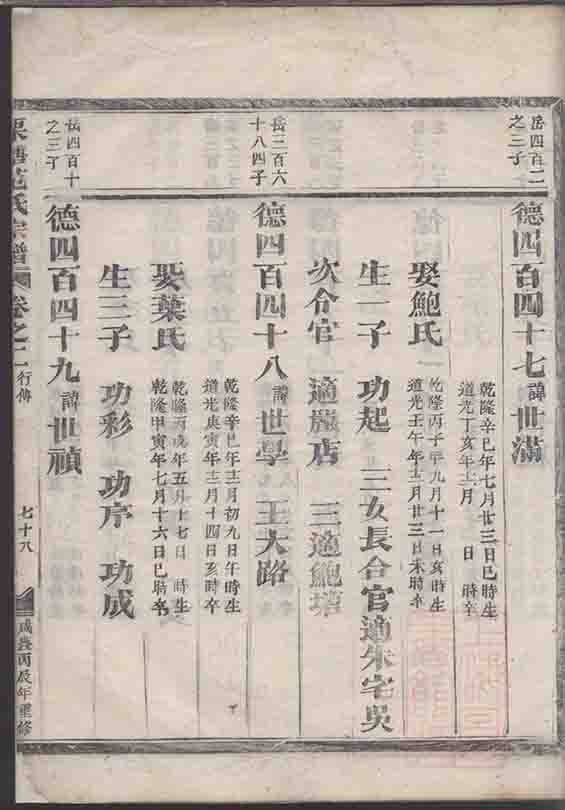 岳四百二
之三子
德四百四十七諱世滿
乾隆辛巳年七月廿三日巳時生
道光丁亥年十二月 日 時卒
娶鮑氏
乾隆丙子年九月十一日亥時生
道光壬午年十二月廿三日未時卒
生一子 功起 三女長合官適朱宅吳
次合官 適 店 三適鮑塘
岳三百六
十八四子
德四百四十八諱世學 王大路
乾隆辛巳年十二月初九日午時生
道光庚寅年十二月十四日亥時卒
娶葉氏
乾隆丙戌年五月十七日 時生
乾隆甲寅年七月十六日巳時卒
生三子 功彩 功序 功成
岳四百十
之三子
德四百四十九諱世禎
范氏宗譜 卷之二 行傳 七十八 咸豐丙辰年重修